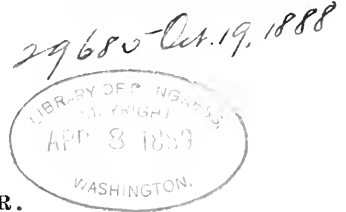 29680 Oct. 19, 1888
LIBRARY OF CONGRESS,
COPYRIGHT
APR 8 1889
WASHINGTON.
R.